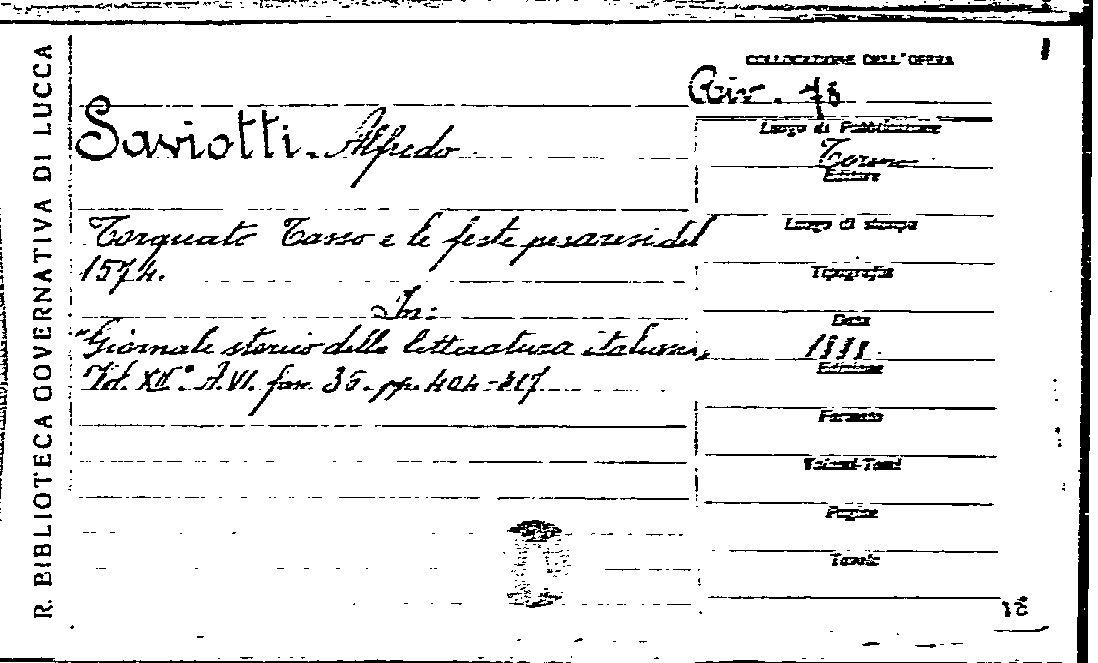 R. BIBLIOTECA GOVERNATIVA DI LUCCA
COLLOCAZIONE DELL'OPERA
Riv. 78
Saviotti. Alfredo
Luogo di Pubblicazione
Torino
Editore
Torquato Tasso e le feste pesaresi del
1574.
Luogo di stampa
Tipografia
In:
Data
"Giornale storico della letteratura italiana,
1888.
Edizione
Vol. XII° A. VI. fasc. 36. pp. 404-417
Formato
Volumi-Tomi
Pagine
Tavole